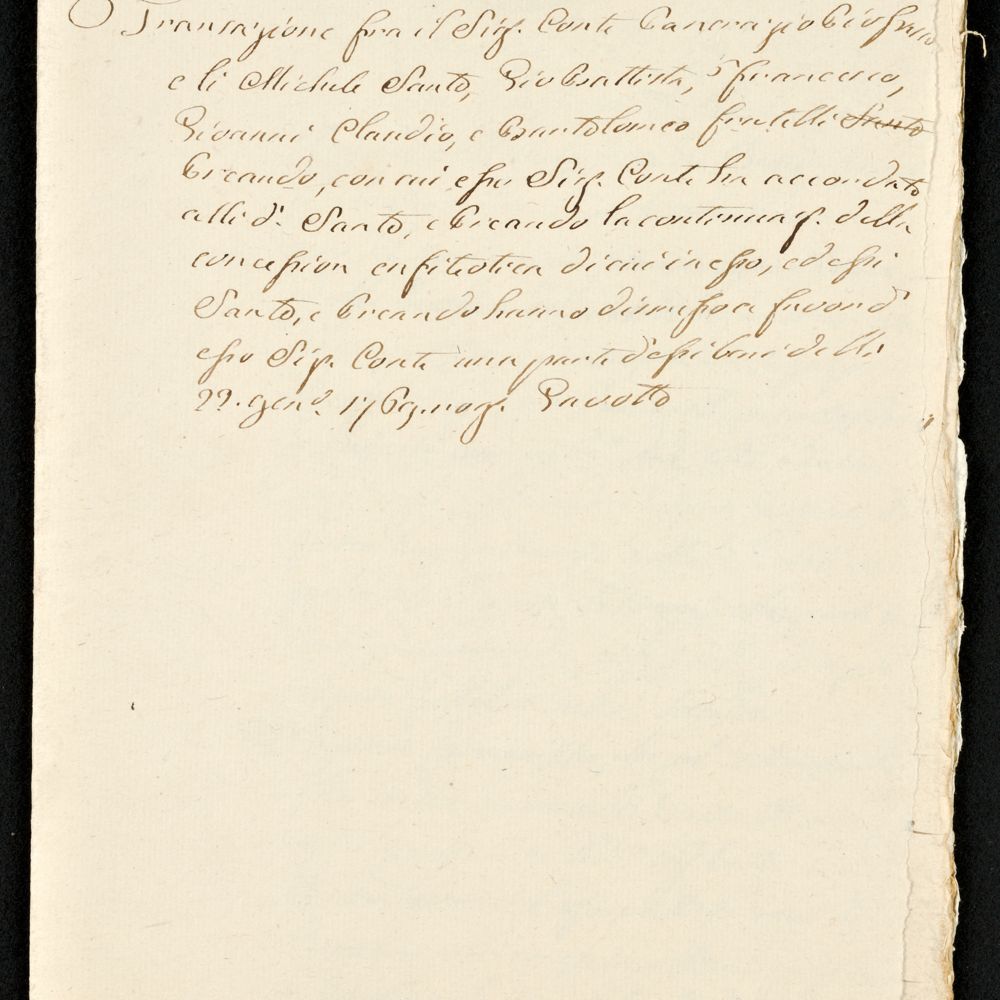 Transazione fra il Sig. Conte Pancrazio Giofredo
e li Michele Santo, Gio Battista, Francesco,
Giovanni Claudio, e Bartolomeo fratelli Santo
Breando, con cui esso Sig. Conte ha accordato
alli d.i Santo, e Breando la continuaz. della
concession enfiteotica di cui in esso, ed essi
Santo, e Breando hanno dimesso a favor d'
esso Sig. Conte una parte d'essi beni delli
29. gen.o 1769. rog.